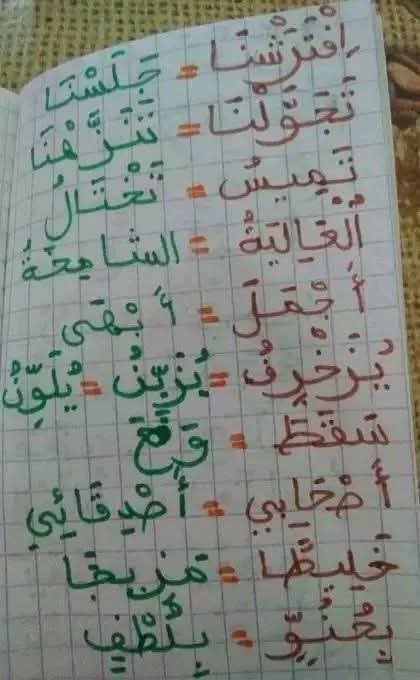 اِفْتَرَشْنَا = جَلَسْنَا
تَجَوَّلْنَا = تَنَزَّهْنَا
تَمِيسُ = تَخْتَالُ
الْعَالِيَةُ = الشَّامِخَةُ
أَجْمَلَ = أَبْهَى
يُزَخْرِفُ = يُزَيِّنُ = يُلَوِّنُ
سَقَطَ = وَقَعَ
أَصْحَابِي = أَصْدِقَائِي
خَلِيطًا = مَزِيجًا
بِحُنُوٍّ = بِلُطْفٍ